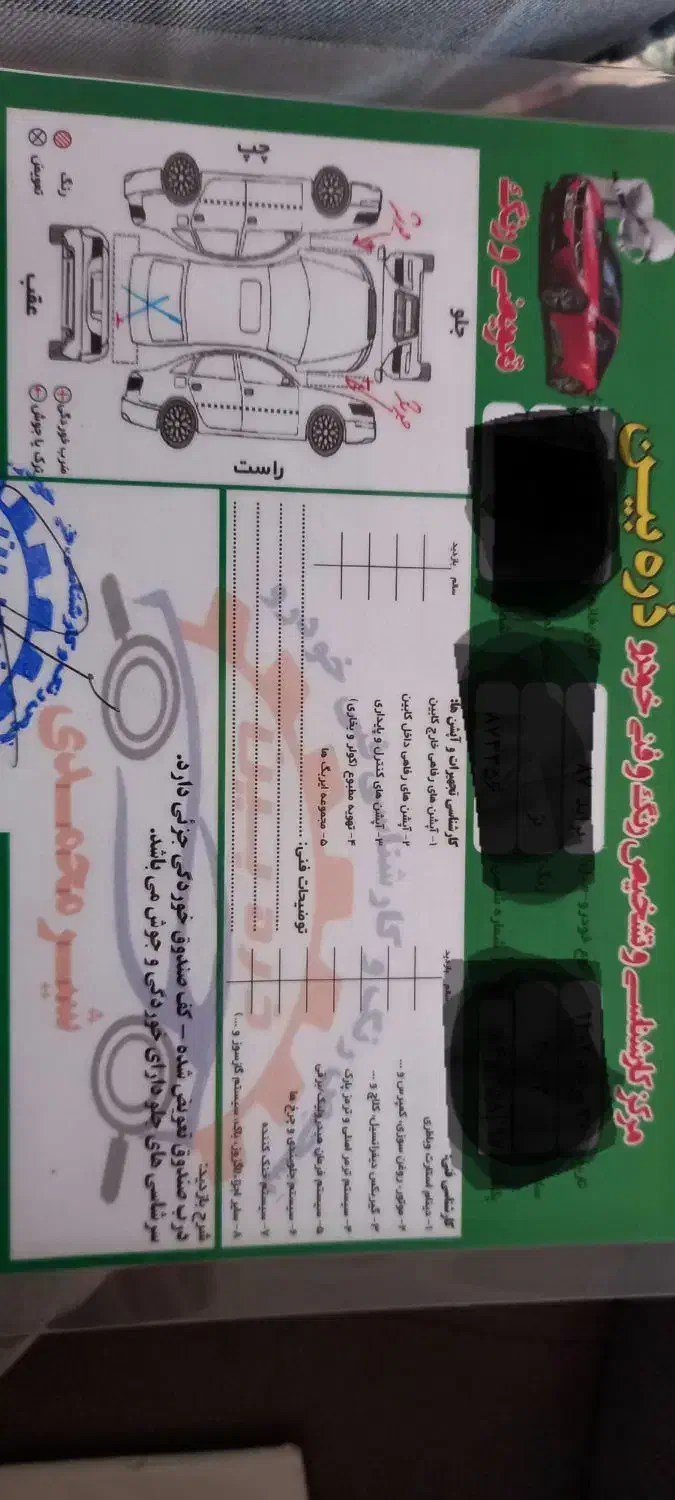 ذره بیـن
مرکز کارشناسـی و تشخیص رنگ و فنی خودرو
تعویضی و رنگ
پراید ۸۷
جلو
چپ
راست
عقب
رنگ
تعویض
ضرب خوردگی
ترک یا جوش
کارشناسی فنی:
۱- دینام استارت وباطری
۲- موتور، روغن سوزی، کمپرس و ...
۳- گیربکس دیفرانسیل، کلاچ و ...
۴- سیستم ترمز اصلی و ترمز پارک
۵- سیستم فرمان هیدرولیک/برقی
۶- سیستم جلوبندی و چرخ ها
۷- سیستم خنک کننده
۸- سایر اجزا، اگزوز، باک، سیستم گازسوز و ...)
سالم
بازدید
کارشناسی تجهیزات و آپشن ها:
۱- آپشن های رفاهی خارج کابین
۲- آپشن های رفاهی داخل کابین
۳- آپشن های کنترل و پایداری
۴- تهویه مطبوع (کولر و بخاری)
۵- مجموعه ایربگ ها
سالم
بازدید
توضیحات فنی:
شرح بازدید:
درب صندوق تعویض شده – کف صندوق خوردگی جزئی دارد.
سرشاسی های جلو دارای خوردگی و جوش می باشد.
شیـر محمـدی